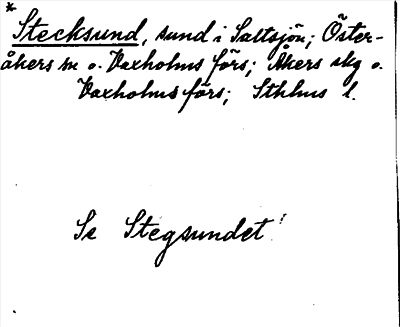 * Stecksund, sund i Saltsjön; Öster-
åkers sn o. Vaxholms förs; Åkers skg o.
Vaxholms förs; Sthlms l.
Se Stegsundet!